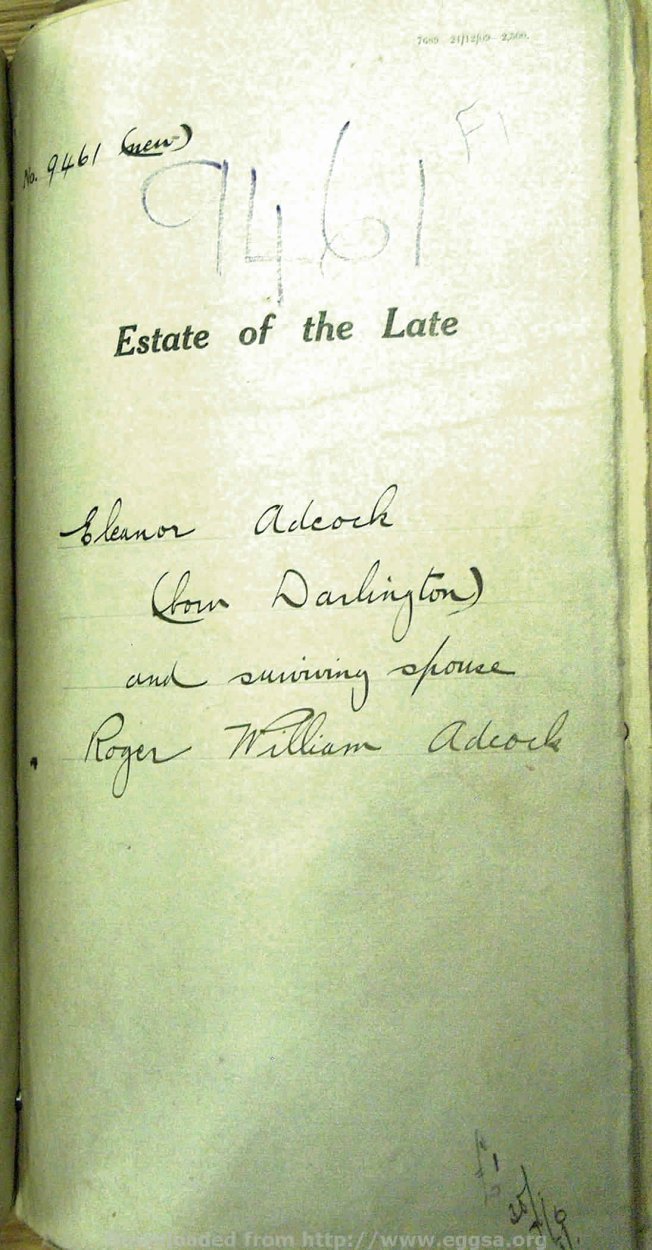 7689 21/12/09 2,500.
No. 9461 (new)
9461
F1
Estate of the Late
Eleanor Adcock
(born Darlington)
and surviving spouse
Roger William Adcock
Downloaded from http://www.eggsa.org